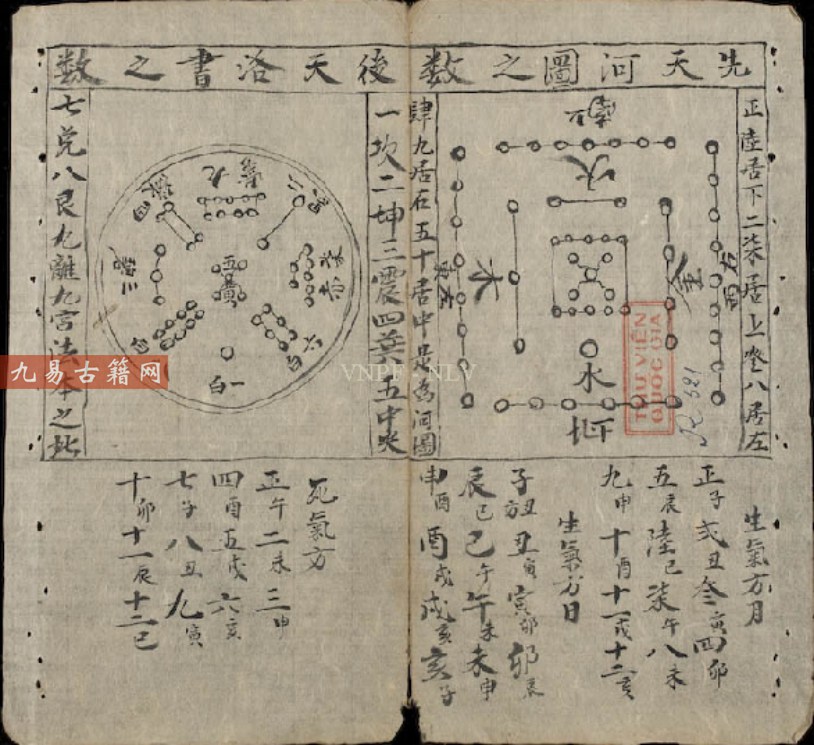 先天河圖之数後天洛書之数
正陸居下二柒居上叁八居左
肆九居右五十居中是為河圖
北
火
右
西
金
木
左
東
水
下
一坎二坤三震四巽五中央
九
二
五黄
柒赤
六白
一白
七兌八艮九離九宮法本之此
九易古籍网
VNPF ONLY
THƯ VIỆN
QUỐC GIA
R.521
生氣方月
正子弍丑叁寅四卯
五辰陸巳柒午八未
九申十酉十一戌十二亥
生氣方日
子方丑丑寅寅卯卯辰
辰巳巳午午未未申
申酉酉戌戌亥亥子
死氣方
正午二未三申
四酉五戌六亥
七子八丑九寅
十卯十一辰十二巳